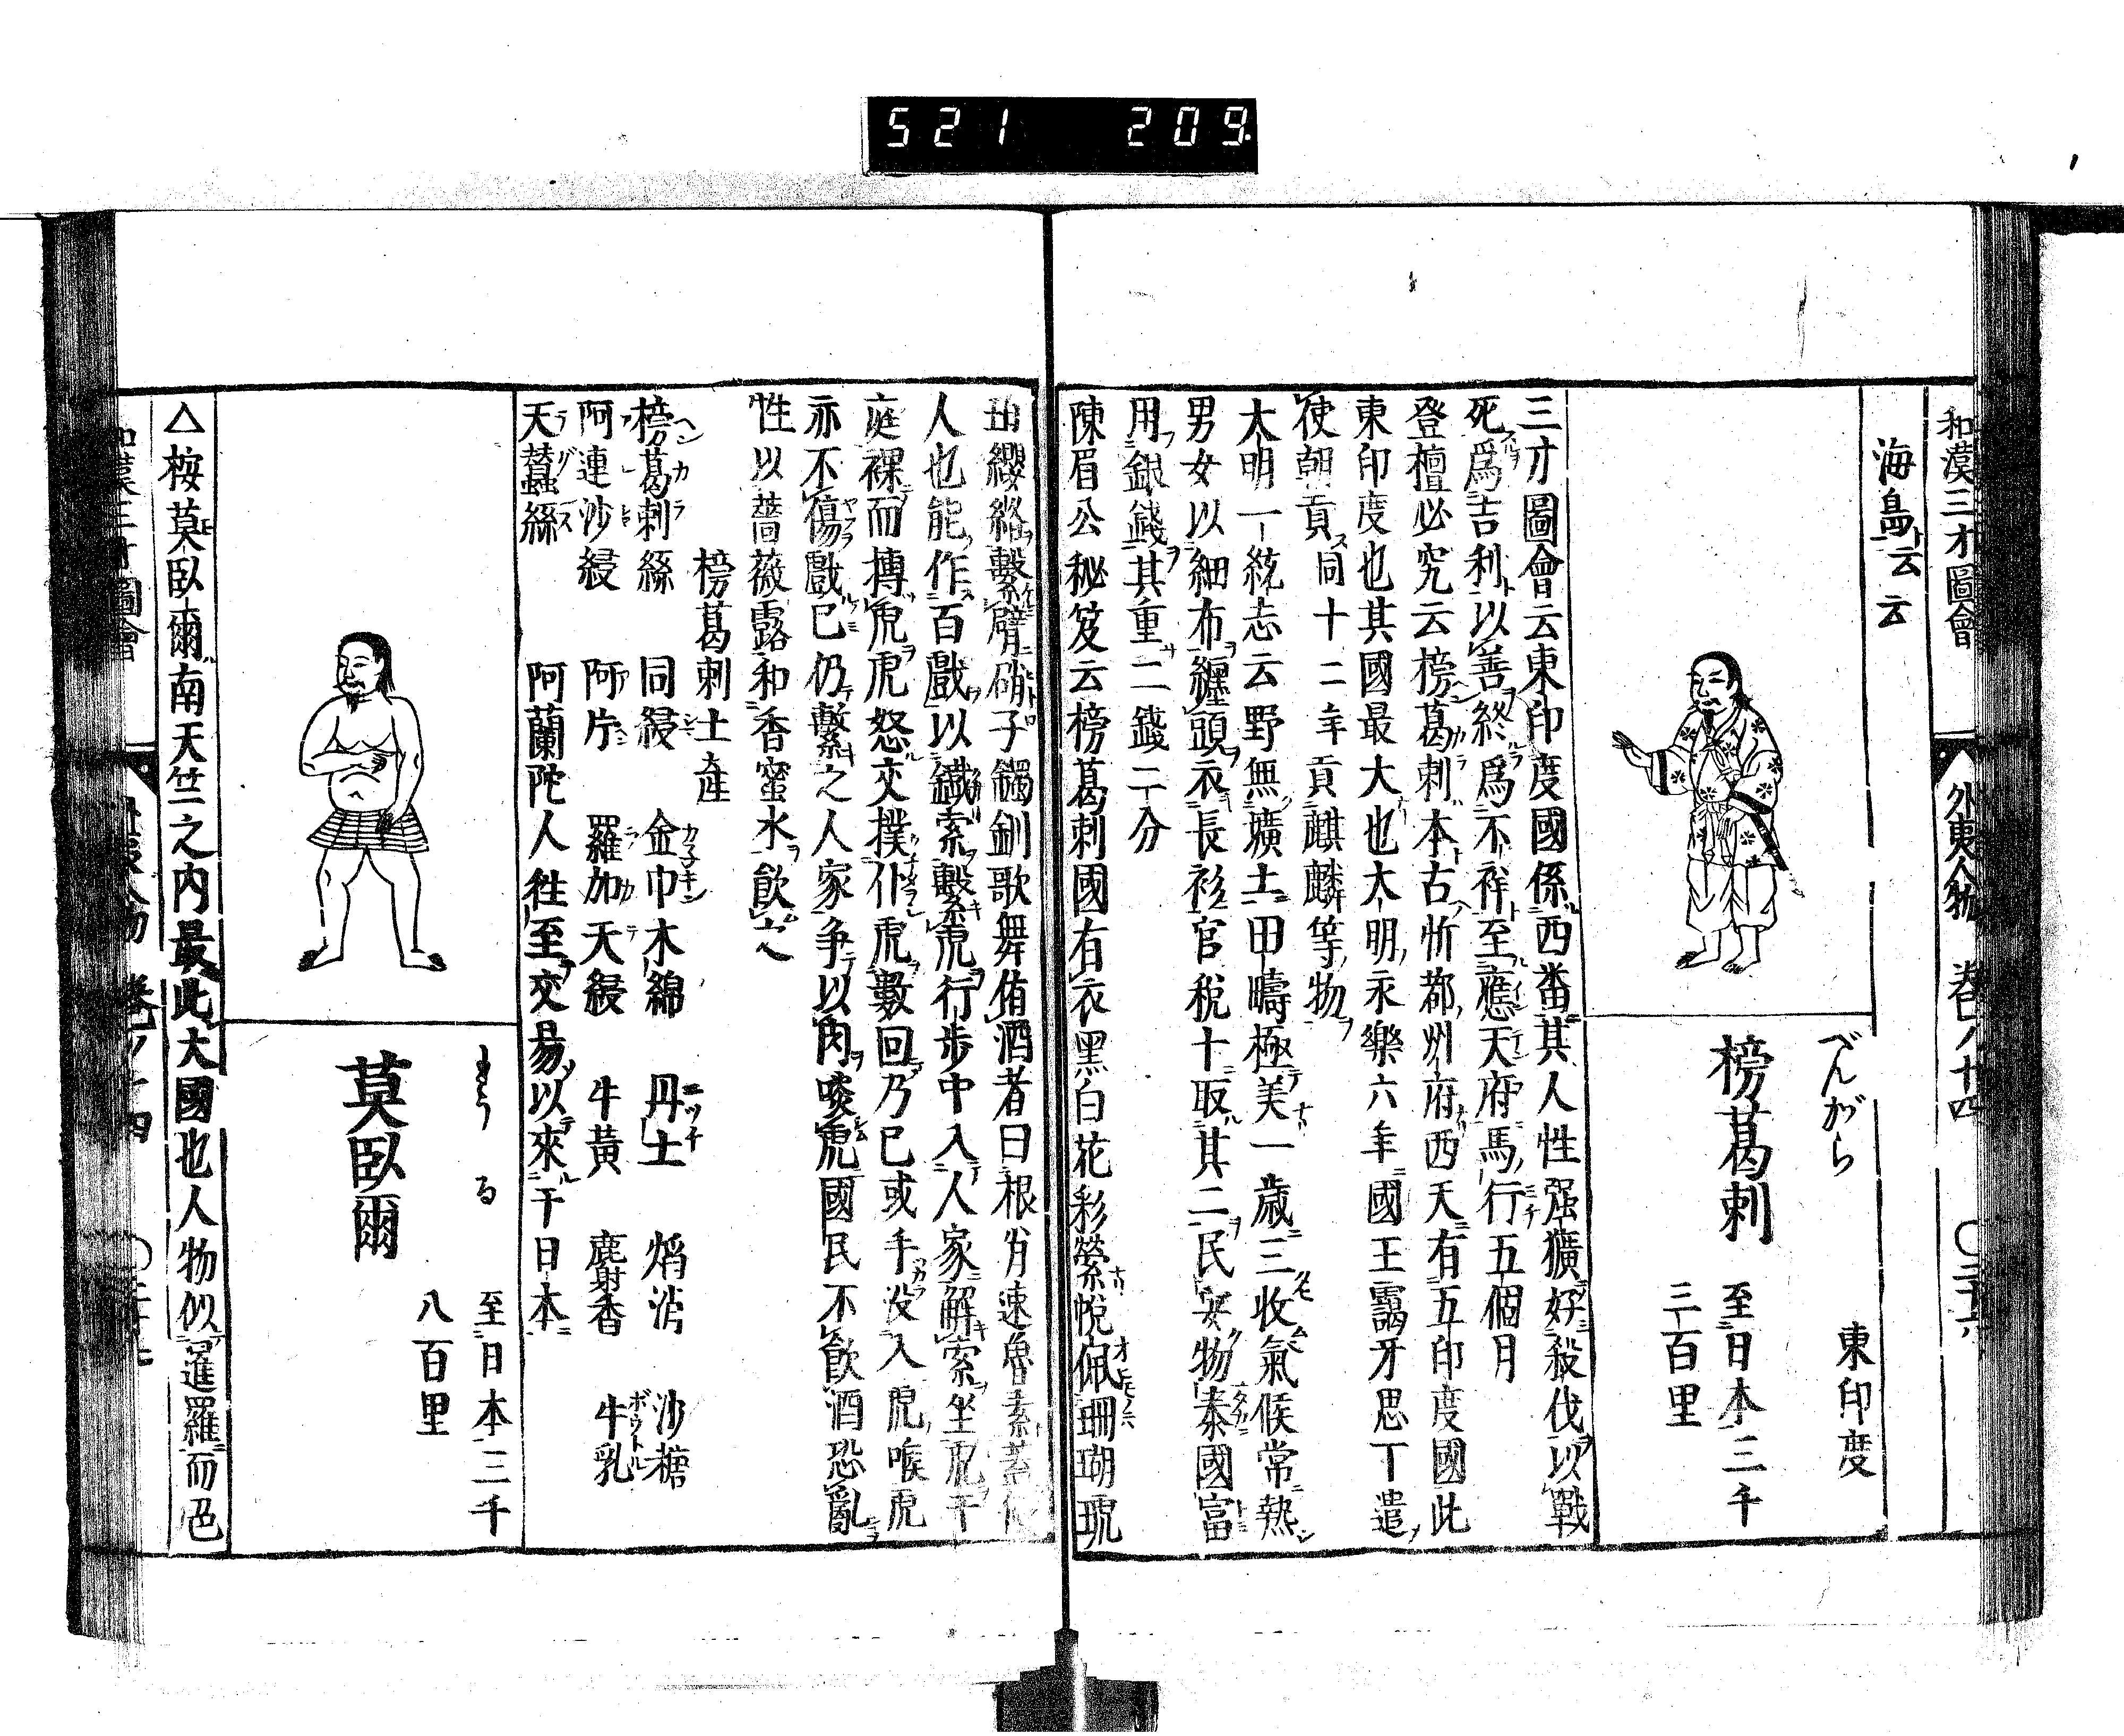 521 209
和漢三才圖會 外夷人物 卷ノ十四
海島云云
べんがら 東印度
榜葛剌 至日本三千
三百里
三才圖會云東印度國係西番其人性强獷好殺伐以戰
死爲吉利以善終爲不祥至應天府馬行五個月
登檀必究云榜葛剌本古忻都州府西天有五印度國此
東印度也其國最大也大明永樂六年國王靄牙思丁遣
使朝貢同十二年貢麒麟等物
大明一統志云野無壙土田疇極美一歲三收氣候常熱
男女以細布纏頭衣長衫官稅十取其二民安物泰國富
用銀錢其重二錢二分
陳眉公秘笈云榜葛剌國有衣黑白花彩縈帨佩珊瑚琥
珀纓絡繫臂硝子鐲釧歌舞侑酒者曰根肖速魯素
人也能作百戲以鐵索繫虎行步中入人家解索坐虎于
庭裸而搏虎虎怒交撲仆虎數回乃已或手没入虎喉虎
亦不傷戲已仍繫之人家争以肉啖虎國民不飮酒恐亂
性以薔薇露和香蜜水飮之
榜葛剌土產
榜葛剌絲 同綅 金巾木綿 丹土 焰硝 沙糖
阿連沙綅 阿片 羅加天綅 牛黃 麝香 牛乳
天蠶絲 阿蘭陀人徃至交易以來于日本
もうる 至日本三千
莫臥爾 八百里
△桉莫臥爾南天竺之內最此大國也人物似暹羅而色